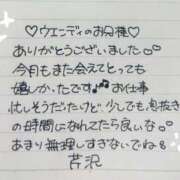 ♡ウエンディのお兄様♡
ありがとうございました♡♡
今月もまた会えてとっても
嬉しかったです♪♪お仕事
忙しそうだったけど、少しでも息抜き
の時間になれてたら良いな
あまり無理しすぎないでね
芹沢